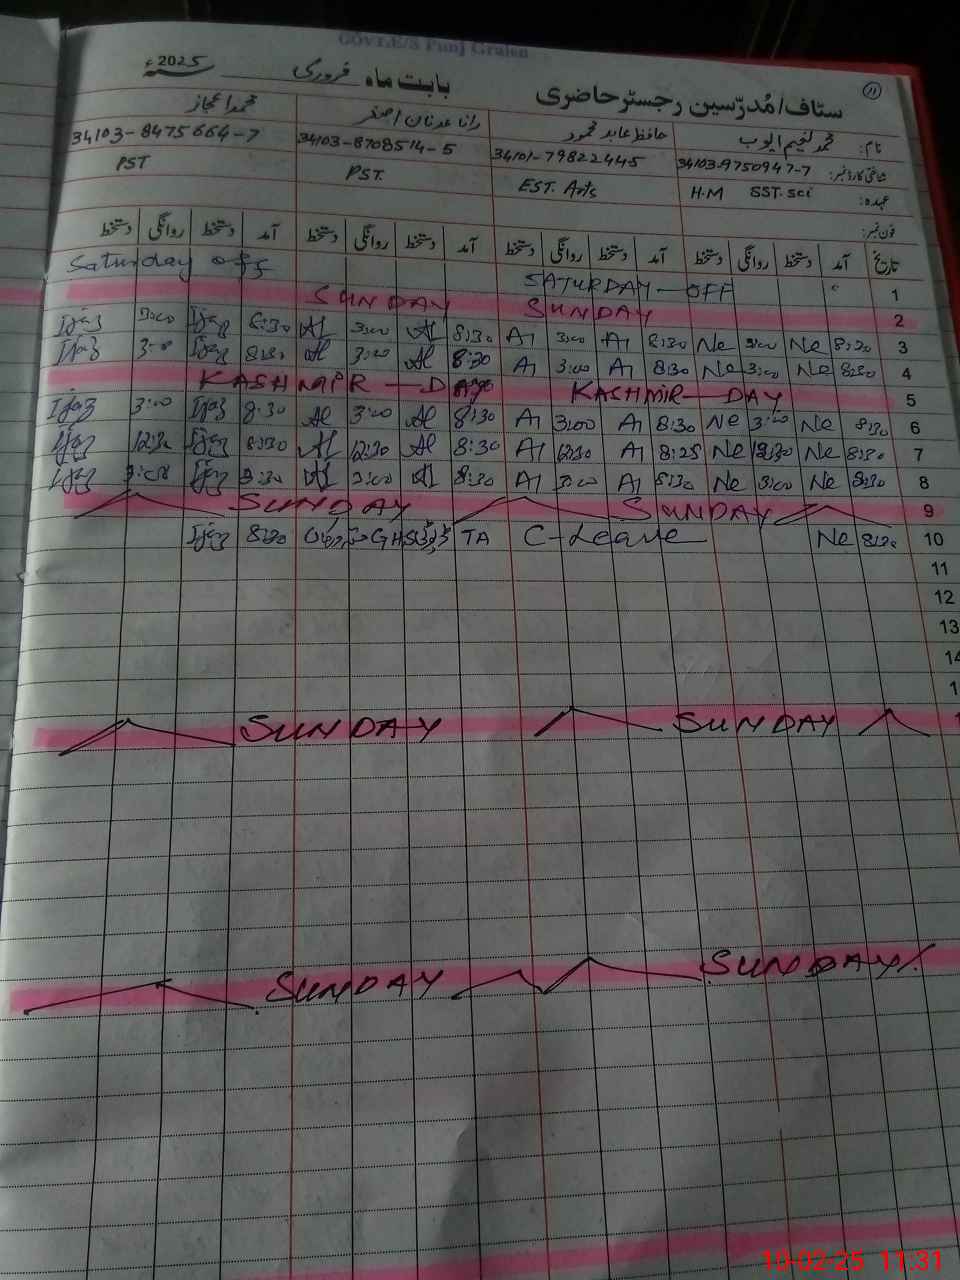 GOVT.E/S Punj Graien
بابت ماہ فروری سنہ 2025ء
سٹاف/مُدرّسین رجسٹر حاضری
11
نام: محمد نعیم ایوب حافظ عابد محمود رانا عدنان اصغر محمد اعجاز
شناختی کارڈ نمبر: 34103-9750947-7 34101-79822445 34103-8708514-5 34103-8475664-7
عہدہ: H.M SST. Sci EST. Arts PST. PST
فون نمبر:
تاریخ آمد دستخط روانگی دستخط آمد دستخط روانگی دستخط آمد دستخط روانگی دستخط آمد دستخط روانگی دستخط
Saturday off SATURDAY-OFF 1
SUNDAY SUNDAY 2
Ijaz 3:00 Ijaz 8:30 Al 3:00 Al 8:30 A1 3:00 A1 8:30 Ne 3:00 Ne 8:30 3
Ijaz 3:00 Ijaz 8:30 Al 3:00 Al 8:30 A1 3:00 A1 8:30 Ne 3:00 Ne 8:30 4
KASHMIR-DAY KASHMIR-DAY 5
Ijaz 3:00 Ijaz 8:30 Al 3:00 Al 8:30 A1 3:00 A1 8:30 Ne 3:00 Ne 8:30 6
Ijaz 12:30 Ijaz 8:30 Al 12:30 Al 8:30 A1 12:30 A1 8:25 Ne 12:30 Ne 8:30 7
Ijaz 3:00 Ijaz 8:30 Al 3:00 Al 8:30 A1 3:00 A1 8:30 Ne 3:00 Ne 8:30 8
SUNDAY SUNDAY 9
Ijaz 8:30 GHS TA C-Leave Ne 8:30 10
11
12
13
14
1
SUNDAY SUNDAY 1
SUNDAY SUNDAY
10-02-25 11:31